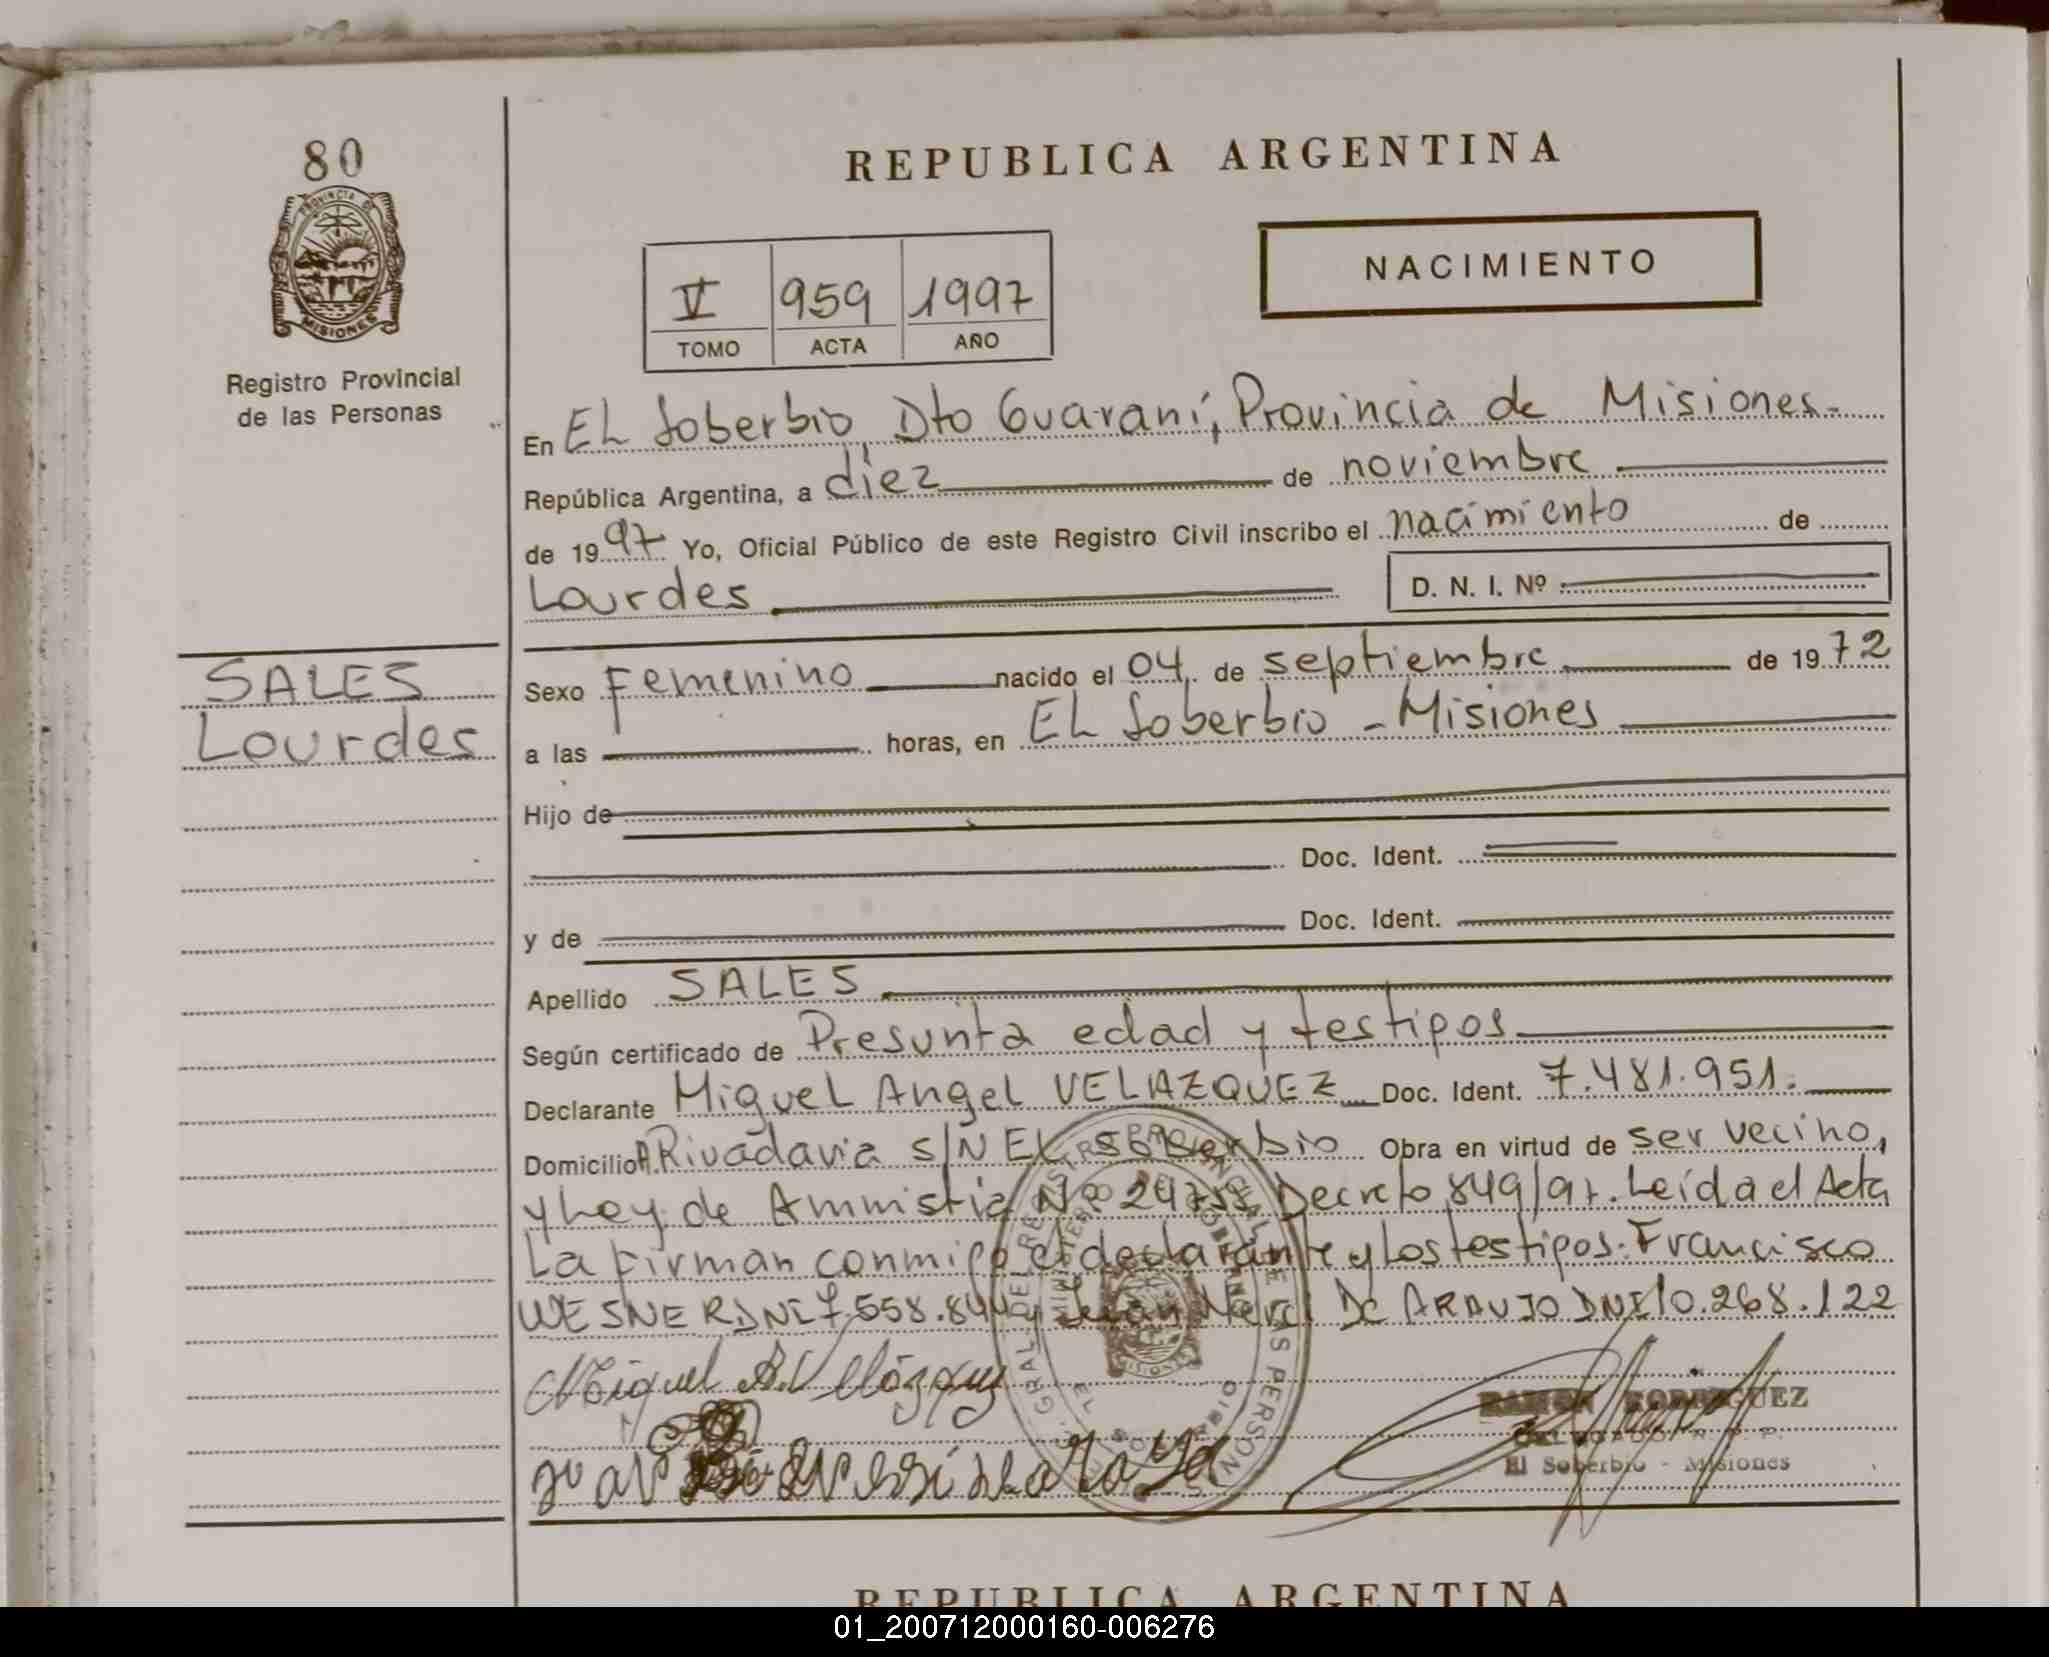 80
REPUBLICA ARGENTINA
PROVINCIA DE
MISIONES
NACIMIENTO
V 959 1997
TOMO ACTA AÑO
Registro Provincial
de las Personas
En EL Soberbio, Dto Guaraní, Provincia de Misiones.-
República Argentina, a diez de noviembre
de 1997 Yo, Oficial Público de este Registro Civil inscribo el nacimiento de
Lourdes D. N. I. Nº
SALES
Lourdes
Sexo Femenino nacido el 04 de septiembre de 1972
a las horas, en EL Soberbio - Misiones
Hijo de
Doc. Ident.
y de Doc. Ident.
Apellido SALES
Según certificado de Presunta edad y testigos
Declarante Miguel Angel VELAZQUEZ Doc. Ident. 7.481.951.
Domicilio A. Rivadavia S/N EL Soberbio Obra en virtud de ser vecino,
y Ley de Ammistia Nº 24755 Decreto 849/97. Leída el Acta
La firman conmigo el declarante y los testigos: Francisco
WESNER DNI 7.558.844 y Juan Nerci De ARAUJO DNI 10.268.122
Miguel A. Velázquez
RAMON RODRIGUEZ
El Soberbio - Misiones
REPUBLICA ARGENTINA
01_200712000160-006276